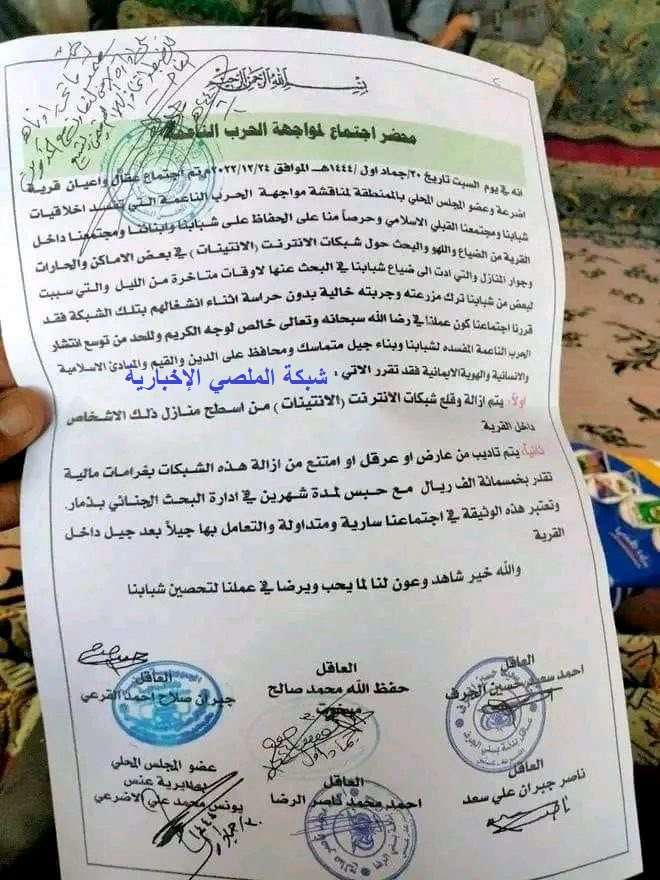 بسم الله الرحمن الرحيم
محضر اجتماع لمواجهة الحرب الناعمة
انه في يوم السبت تاريخ ٢٠/جماد اول /١٤٤٤هـ الموافق ٢٠٢٢/١٢/٢٤م تم اجتماع عقال واعيان قرية
اضرعة وعضو المجلس المحلي بالمنطقة لمناقشة مواجهة الحرب الناعمة التي تفسد اخلاقيات
شبابنا ومجتمعنا القبلي الاسلامي وحرصاً منا على الحفاظ على شبابنا وابنائنا ومجتمعنا داخل
القرية من الضياع واللهو والبحث حول شبكات الانترنت (الانتينات) في بعض الاماكن والحارات
وجوار المنازل والتي ادت الى ضياع شبابنا في البحث عنها لاوقات متاخرة من الليل والتي سببت
لبعض من شبابنا ترك مزرعته وجربته خالية بدون حراسة اثناء انشغالهم بتلك الشبكة فقد
قررنا اجتماعنا كون عملنا في رضا الله سبحانه وتعالى خالص لوجه الكريم وللحد من توسع انتشار
الحرب الناعمة المفسده لشبابنا وبناء جيل متماسك ومحافظ على الدين والقيم والمبادئ الاسلامية
والانسانية والهوية الايمانية فقد تقرر الاتي :
شبكة الملصي الإخبارية
اولاً: يتم ازالة وقلع شبكات الانترنت (الانتينات) من اسطح منازل ذلك الاشخاص
داخل القرية
ثانياً: يتم تاديب من عارض او عرقل او امتنع من ازالة هذه الشبكات بغرامات مالية
تقدر بخمسمائة الف ريال مع حبس لمدة شهرين في ادارة البحث الجنائي بذمار
وتعتبر هذه الوثيقة في اجتماعنا سارية ومتداولة والتعامل بها جيلاً بعد جيل داخل
القرية
والله خير شاهد وعون لنا لما يحب ويرضا في عملنا لتحصين شبابنا
العاقل
احمد سعيد حسين الجرف
العاقل
حفظ الله محمد صالح
العاقل
جبران صلاح احمد القرعي
العاقل
ناصر جبران علي سعد
العاقل
احمد محمد ناصر الرضا
عضو المجلس المحلي
بمديرية عنس
يونس محمد علي الاضرعي